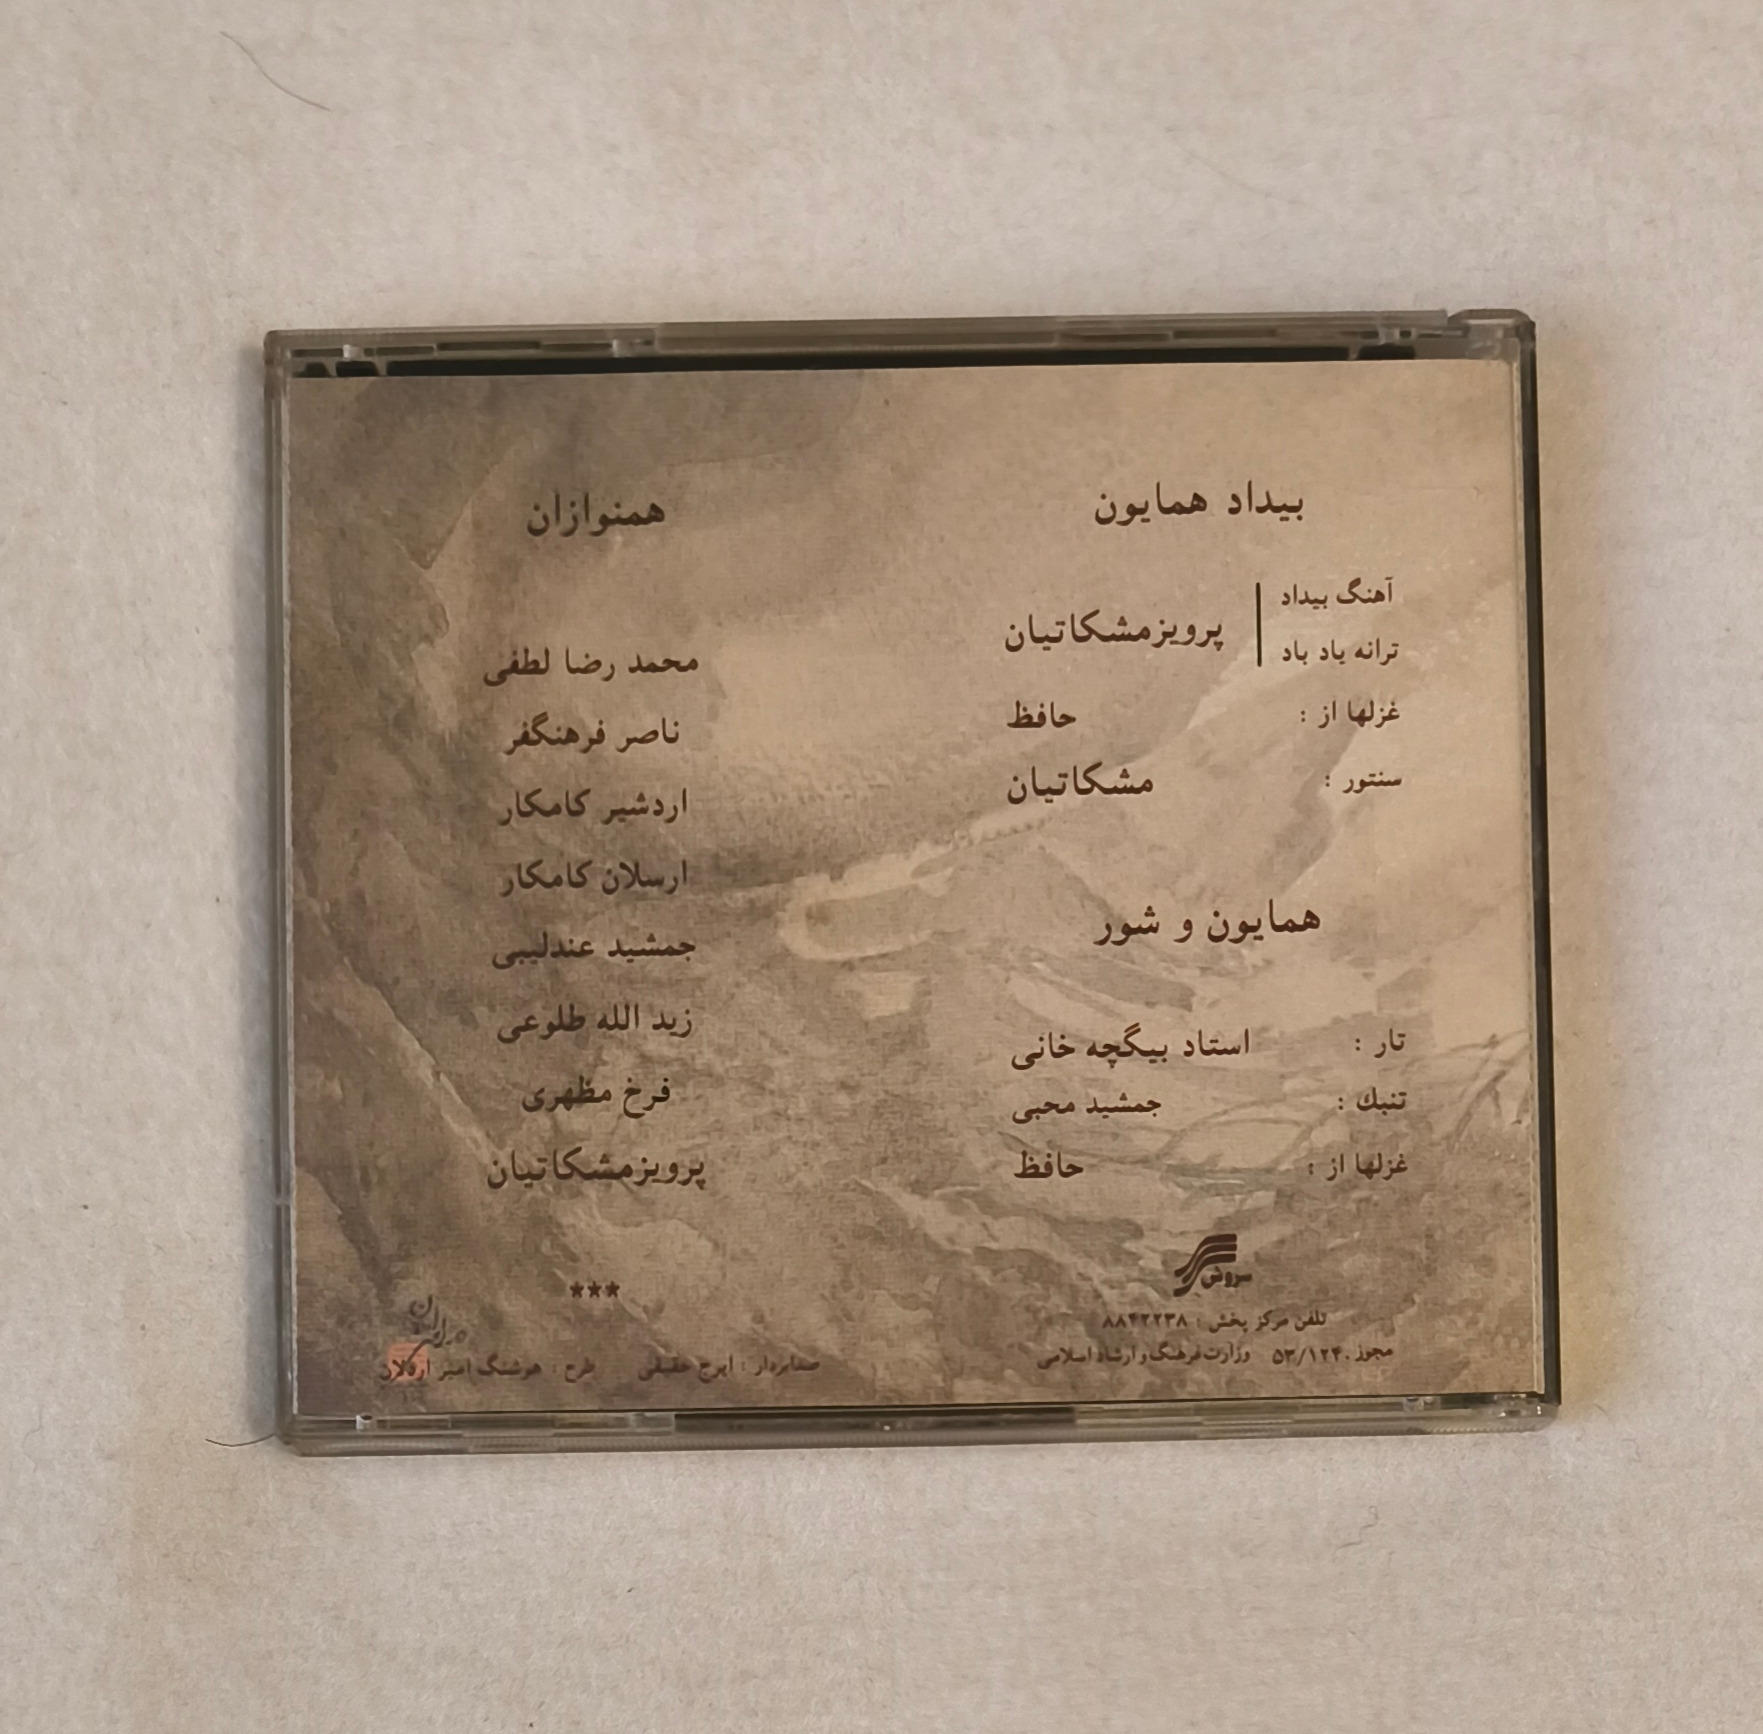 بیداد همایون
آهنگ بیداد
ترانه یاد باد
پرویزمشکاتیان
غزلها از : حافظ
سنتور : مشکاتیان
همایون و شور
تار : استاد بیگچه خانی
تنبك : جمشید محبی
غزلها از : حافظ
سروش
تلفن مرکز پخش : ۸۸۴۲۲۳۸
مجوز ۵۳/۱۲۴۰ وزارت فرهنگ و ارشاد اسلامی
همنوازان
محمد رضا لطفی
ناصر فرهنگفر
اردشیر کامکار
ارسلان کامکار
جمشید عندلیبی
زید الله طلوعی
فرخ مظهری
پرویزمشکاتیان
***
صدابردار : ایرج حقیقی طرح : هوشنگ امیر اردلان